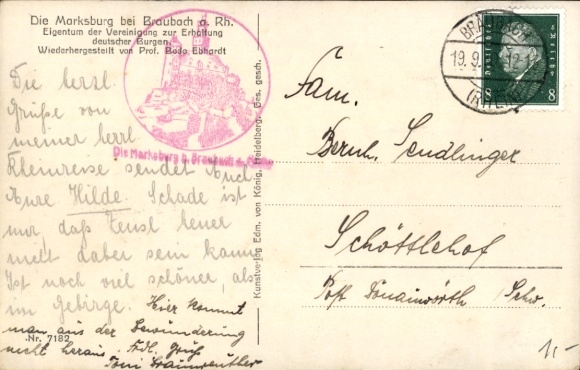 Die Marksburg bei Braubach a. Rh.
Eigentum der Vereinigung zur Erhaltung
deutscher Burgen.
Wiederhergestellt von Prof. Bodo Ebhardt
Die Marksburg b. Braubach a. Rhein
BRAUBACH
19.9.
(RHEIN)
Deutsches Reich
8 8
Die herzl.
Grüße von
meiner herrl.
Rheinreise sendet Euch
Eure Hilde. Schade ist
nur, daß heuer
nicht dabei sein kann.
Ist noch viel schöner, als
im Gebirge. Hier kommt
man aus der Bewunderung
nicht heraus. Frdl. Grüße
Toni
Nr. 7182
Kunstverlag Edm. von König, Heidelberg. Ges. gesch.
Fam.
Bernh. Sendlinger
Schöttlehof
Post Donauwörth Schw.
1,-